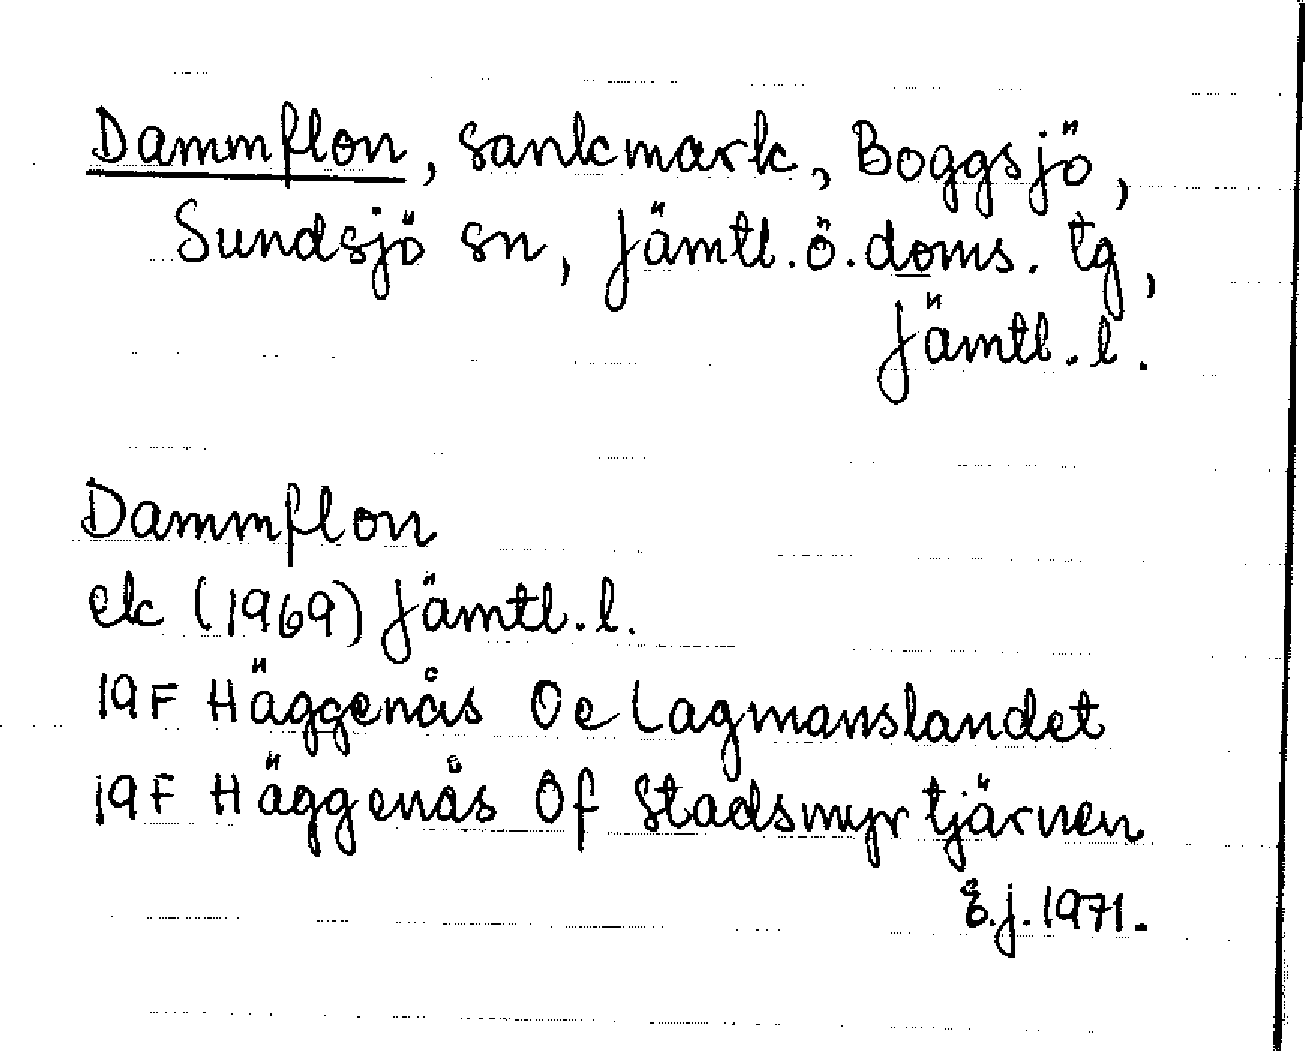 Dammflon, sankmark, Boggsjö,
Sundsjö sn, Jämtl. ö. doms. tg,
Jämtl. l.
Dammflon
ek (1969) Jämtl. l.
19F Häggenås 0e Lagmanslandet
19F Häggenås 0f Stadsmyrtjärnen
j. 1971.